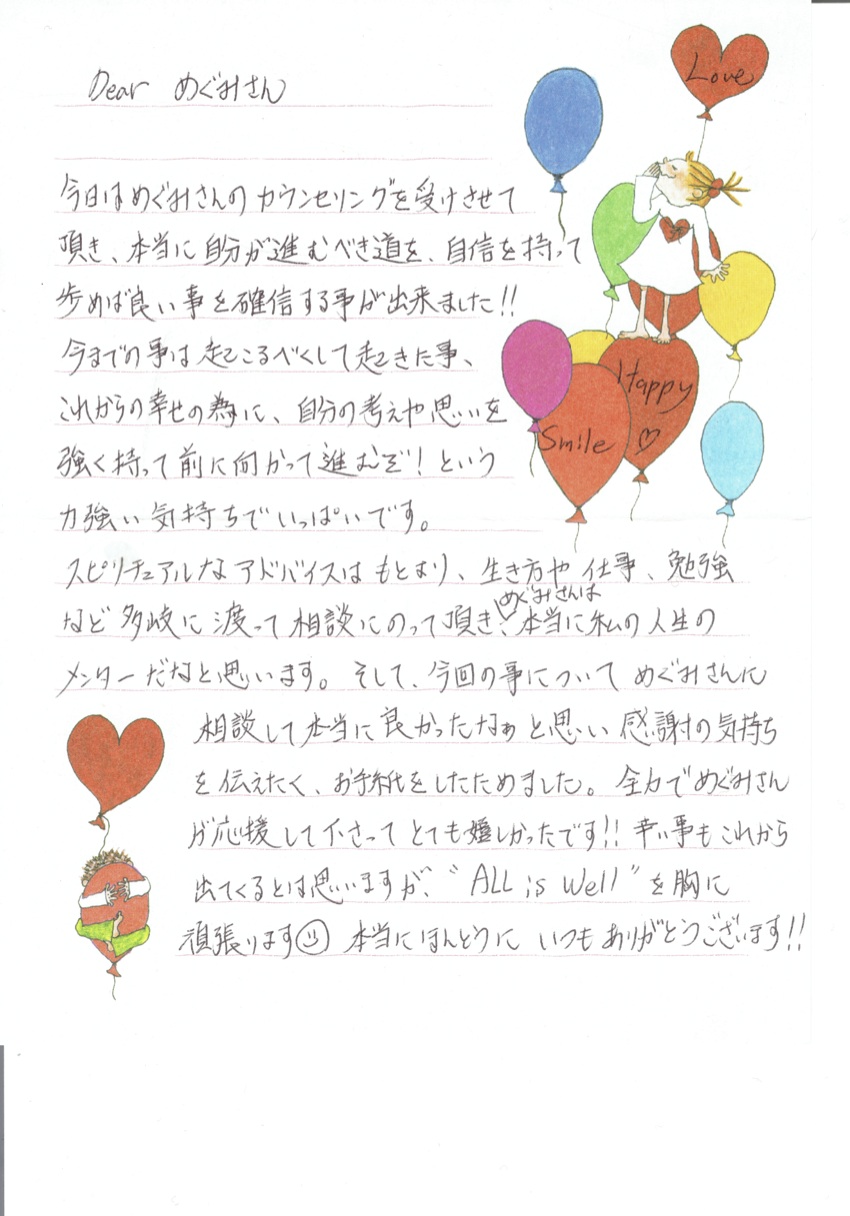 Dear めぐみさん
Love
今日はめぐみさんのカウンセリングを受けさせて
頂き、本当に自分が進むべき道を、自信を持って
歩めば良い事を確信する事が出来ました!!
今までの事は起こるべくして起きた事、
これからの幸せの為に、自分の考えや思いを
強く持って前に向かって進むぞ!という
力強い気持ちでいっぱいです。
Happy
♡
Smile
スピリチュアルなアドバイスはもとより、生き方や仕事、勉強
など多岐に渡って相談にのって頂き、めぐみさんは本当に私の人生の
メンターだなと思います。そして、今回の事についてめぐみさんに
相談して本当に良かったなぁと思い感謝の気持ち
を伝えたく、お手紙をしたためました。全力でめぐみさん
が応援して下さってとても嬉しかったです!!辛い事もこれから
出てくるとは思いますが、“ALL is well”を胸に
頑張ります☺ 本当にほんとうにいつもありがとうございます!!